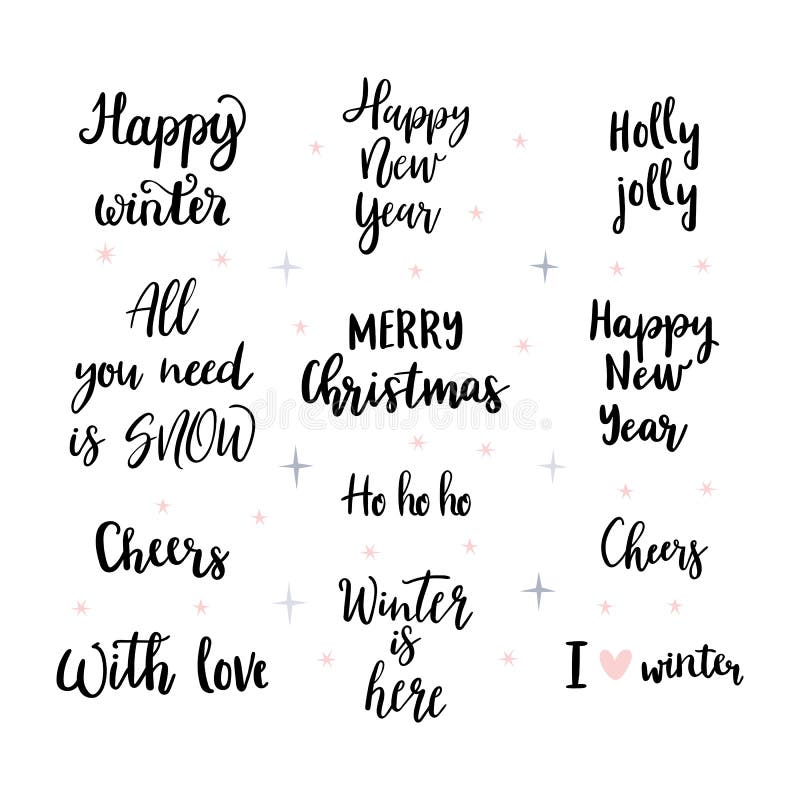 Happy
winter
Happy
New
Year
Holly
jolly
All
you need
is SNOW
MERRY
Christmas
Happy
New
Year
Ho ho ho
Cheers
Cheers
With love
Winter
is
here
I winter
dreamstime